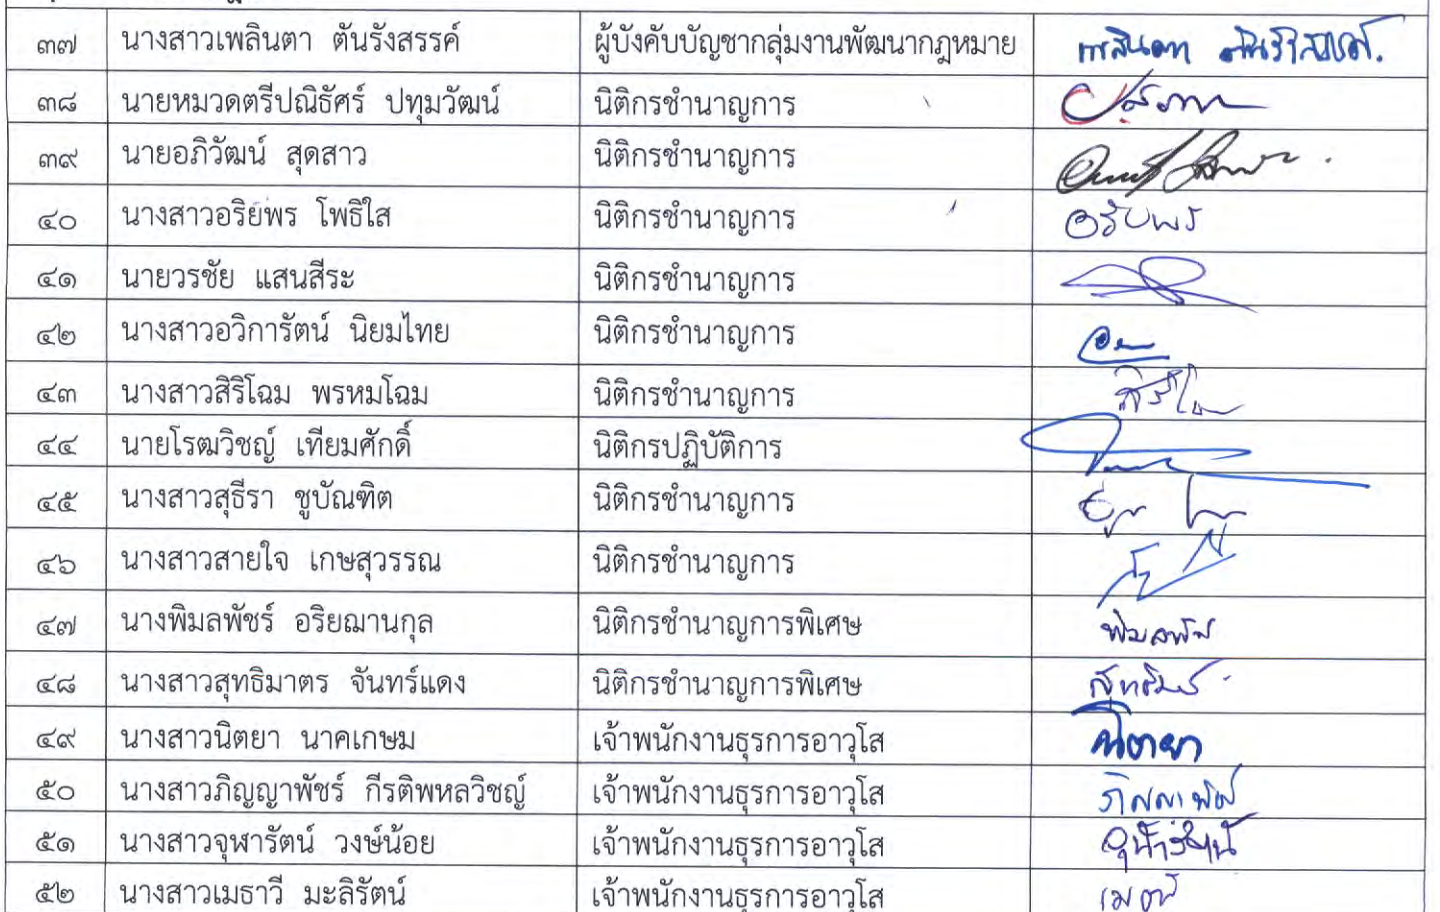 ๓๗ นางสาวเพลินตา ตันรังสรรค์ ผู้บังคับบัญชากลุ่มงานพัฒนากฎหมาย เพลินตา ตันรังสรรค์
๓๘ นายหมวดตรีปณิธัศร์ ปทุมวัฒน์ นิติกรชำนาญการ
๓๙ นายอภิวัฒน์ สุดสาว นิติกรชำนาญการ
๔๐ นางสาวอริย์พร โพธิใส นิติกรชำนาญการ อริยพร
๔๑ นายวรชัย แสนสีระ นิติกรชำนาญการ
๔๒ นางสาวอวิการัตน์ นิยมไทย นิติกรชำนาญการ
๔๓ นางสาวสิริโฉม พรหมโฉม นิติกรชำนาญการ
๔๔ นายโรฒวิชญ์ เทียมศักดิ์ นิติกรปฏิบัติการ
๔๕ นางสาวสุธีรา ชูบัณฑิต นิติกรชำนาญการ
๔๖ นางสาวสายใจ เกษสุวรรณ นิติกรชำนาญการ
๔๗ นางพิมลพัชร์ อริยฌานกุล นิติกรชำนาญการพิเศษ พิมลพัช
๔๘ นางสาวสุทธิมาตร จันทร์แดง นิติกรชำนาญการพิเศษ
๔๙ นางสาวนิตยา นาคเกษม เจ้าพนักงานธุรการอาวุโส นิตยา
๕๐ นางสาวภิญญาพัชร์ กีรติพหลวิชญ์ เจ้าพนักงานธุรการอาวุโส
๕๑ นางสาวจุฬารัตน์ วงษ์น้อย เจ้าพนักงานธุรการอาวุโส จุฬารัตน์
๕๒ นางสาวเมธาวี มะลิรัตน์ เจ้าพนักงานธุรการอาวุโส